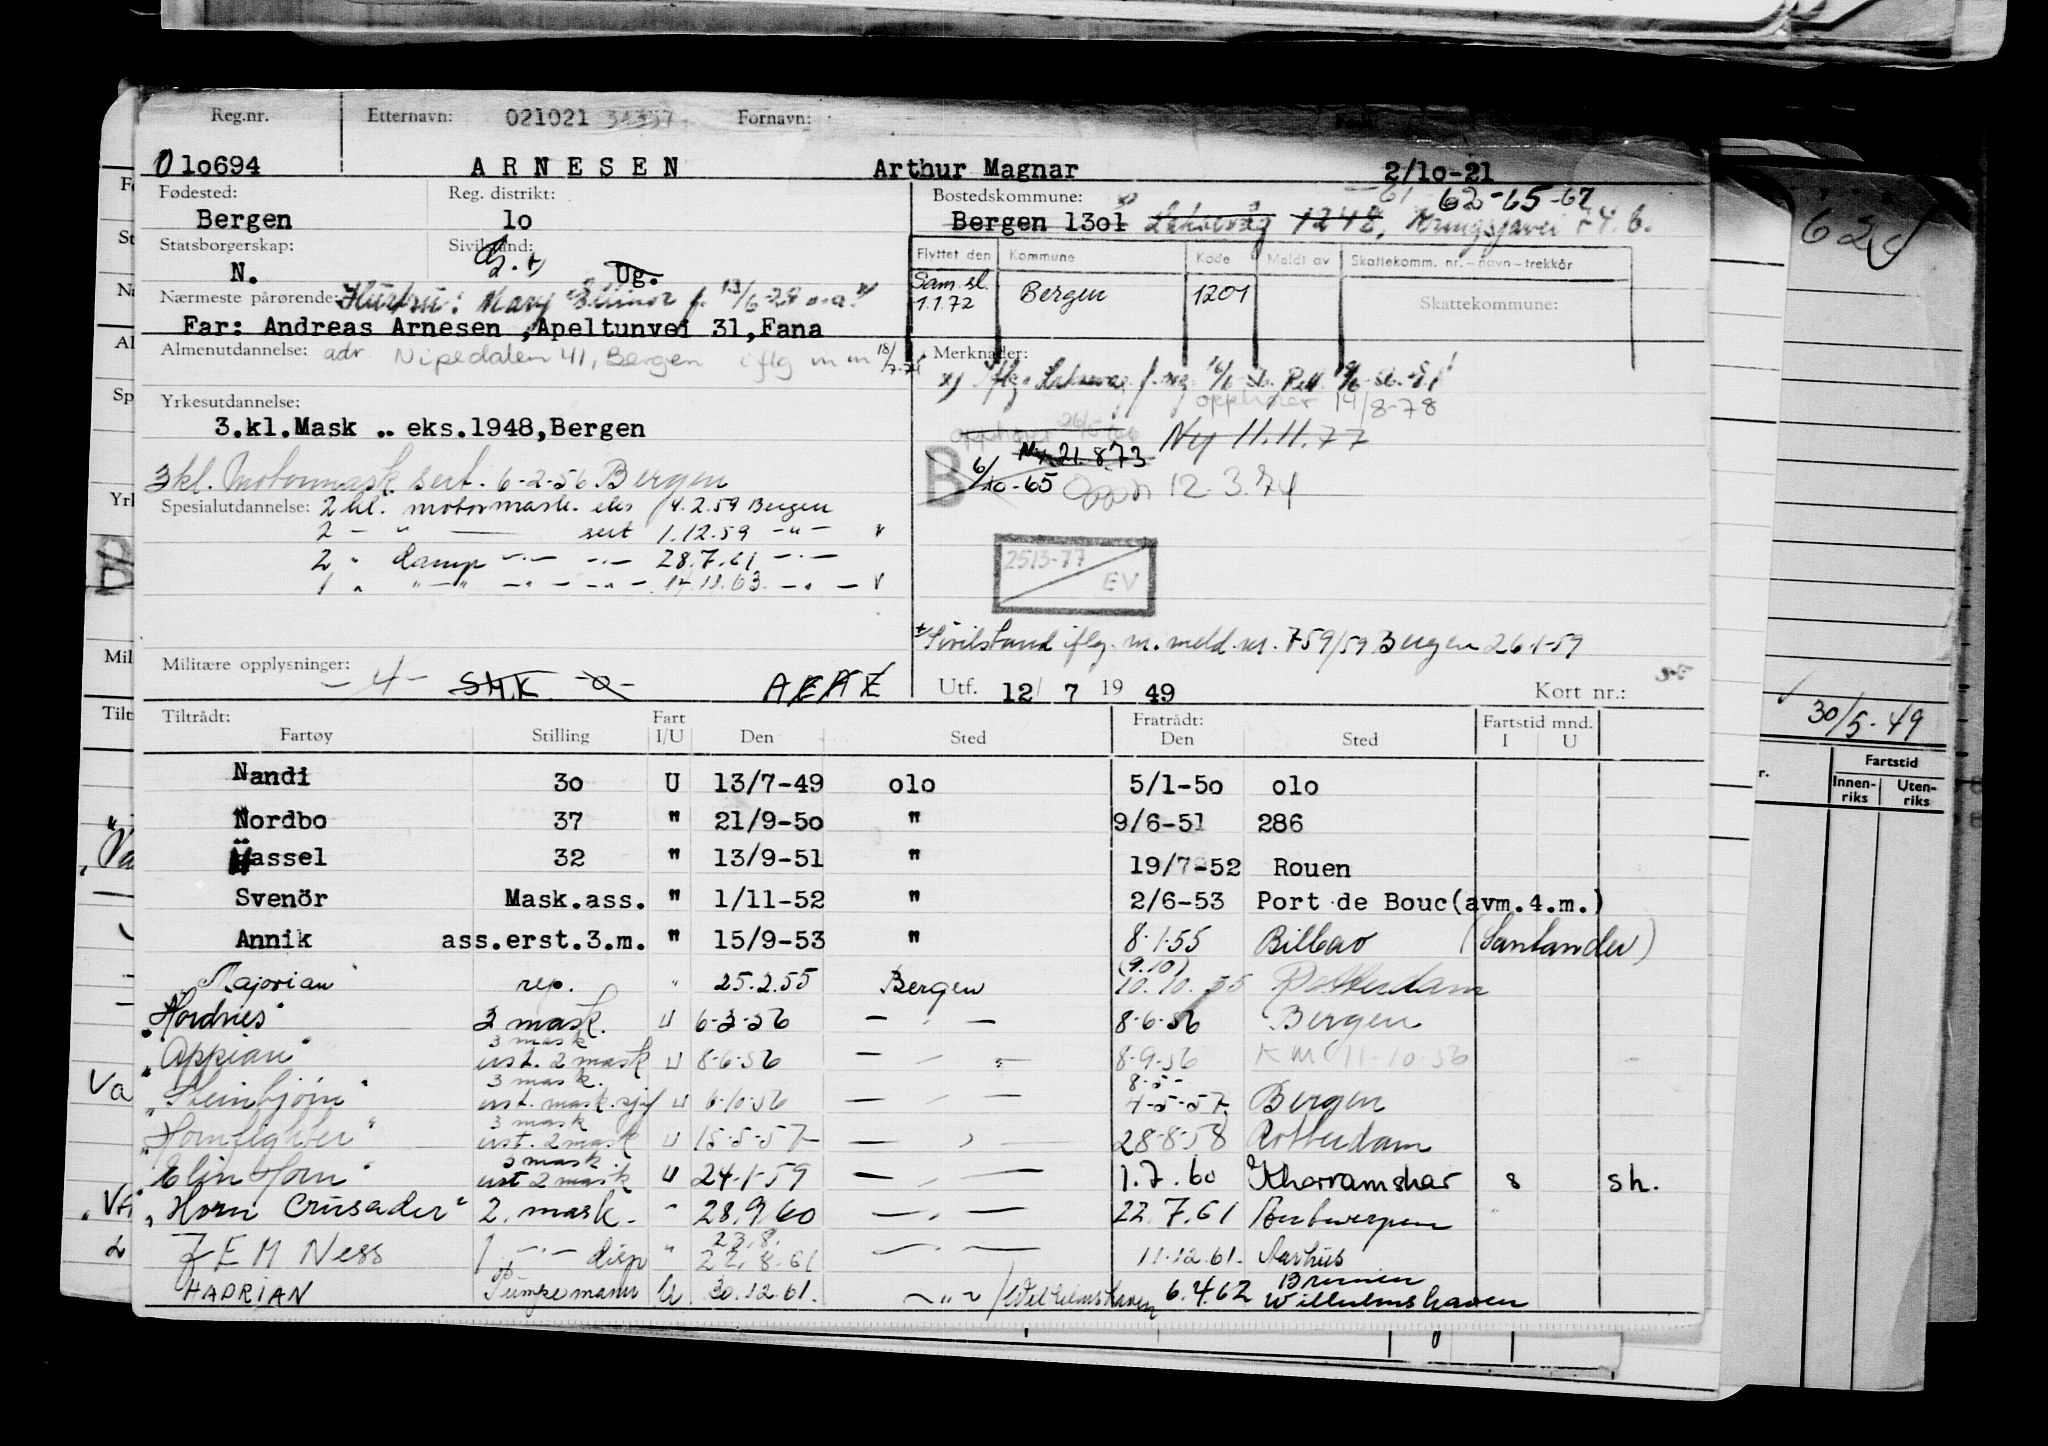 Reg.nr. Etternavn: 021021 34357 Fornavn:
010694 ARNESEN Arthur Magnar 2/10-21
Fødested: Reg. distrikt: Bostedskommune: 61 62-65-67
Bergen 10 Bergen 1301 Laksevåg 1248,
Statsborgerskap: Sivilstand:
N. G. Ug.
Flyttet den Kommune Kode Meldt av Skattekomm. nr.-navn-trekkår
Sam.sl. 1.1.72 Bergen 1201 Skattekommune:
Nærmeste pårørende: Hustru: Mary Ellinor f. 13/6-29
Far: Andreas Arnesen ,Apeltunvei 31,Fana
Almenutdannelse: adr. Nipedalen 41, Bergen iflg m m 18/7-71
Merknader:
opphører 14/8-78
Yrkesutdannelse:
3.kl.Mask .. eks.1948,Bergen
Ny 11.11.77
Ny 21.8.73
B 6/10-65 12.3.74
3kl. Motormask sert. 6-2-56 Bergen
Spesialutdannelse: 2 kl. motormask. eks 14.2.59 Bergen
2 - " - sert 1.12.59 - " - "
2 " damp - " - - " - 28.7.61 - " -
1 " - " - - " - - " - 14.11.63 - " - "
2513-77
EV
Sivilstand iflg. m. meld. nr. 759/59 Bergen 26-1-59
Militære opplysninger: -4- SMK -0- AEAE
Utf. 12/ 7 19 49 Kort nr.:
30/5-49
Tiltrådt: Fart Fratrådt: Fartstid mnd.
Fartøy Stilling I/U Den Sted Den Sted I U
Fartstid
Innen-riks Uten-riks
Nandi 30 U 13/7-49 olo 5/1-50 olo
Nordbo 37 " 21/9-50 " 9/6-51 286
Hassel 32 " 13/9-51 " 19/7-52 Rouen
Svenör Mask.ass. " 1/11-52 " 2/6-53 Port de Bouc(avm.4.m.)
Annik ass.erst.3.m. " 15/9-53 " 8.1.55 Bilbao (Santander)
"Majorian" rep. " 25.2.55 Bergen (9.10) 10.10.55 Rotterdam
"Hordnes" 3 mask. U 6-3-56 - " - 8-6-56 Bergen
3 mask
"Appian" erst. 2 mask U 8-6-56 - " - 8-9-56 KM 11-10-56
3 mask. 8-5-
"Steinbjörn" U 6-10-56 - " - 4-5-57 Bergen
3 mask
"Hornfighter" erst. 2 mask U 15-5-57 - " - 28-8-58 Rotterdam
3 mask
"Elin Horn" erst 2 mask U 24-1-59 - " - 1.7.60 Khorramshar 8 sh.
"Horn Crusader" 2. mask. " 28.9.60 - " - 22.7.61 Antwerpen
23.8.
FEM Ness 1 - " - disp " 22.8.61 - " - 11.12.61. Aarhus
HADRIAN Pumpemann U 30.12.61. - " - /Wilhelmshaven 6.4.62 Bremen
Wilhelmshaven